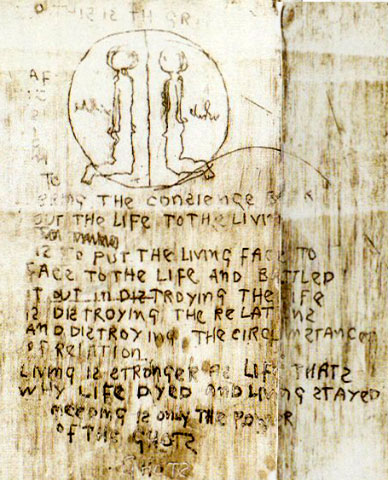 ISIS TH
AF
TO
BRING THE CONSIENGE B K
OUT THE LIFE TO THE LIVIN
IS TO PUT THE LIVING FACE TO
FACE TO THE LIFE AND BATTLED
IT OUT IN DISTROYING THE LIFE
IS DISTROYING THE RELATIONS
AND DISTROYING THE CIRCUMSTANCES
OF RELATION.
LIVING IS STRONGER AS LIFE THATS
WHY LIFE DYED AND LIVING STAYED
MEENING IS ONLY THE POWER
OF THE GHOTS
GHOTS